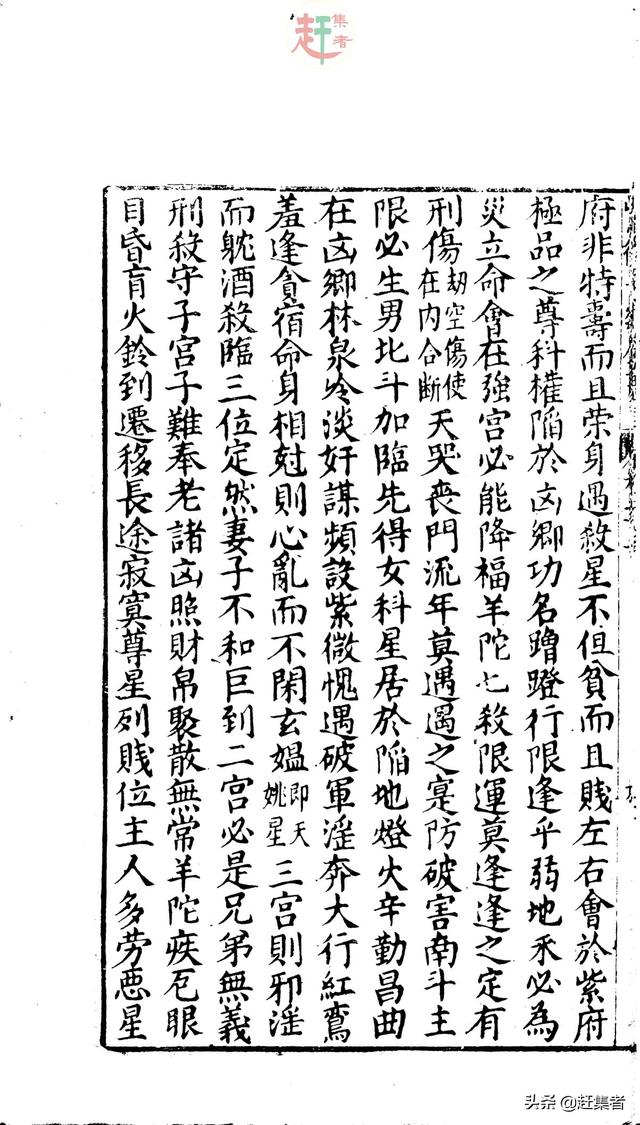 赶集者
府非特壽而且荣身遇殺星不但貧而且賎左右會於紫府
極品之尊科權陷於凶鄉功名蹭蹬行限逢乎弱地禾必為
災立命會在強宮必能降福羊陀七殺限運莫逢逢之定有
刑傷劫空傷使在内合断天哭喪門流年莫遇遇之寔防破害南斗主
限必生男北斗加臨先得女科星居於陷地燈火辛勤昌曲
在凶鄉林泉冷淡奸謀頻設紫微愧遇破軍滛奔大行紅鸞
羞逢貪宿命身相尅則心亂而不閑玄媼即天姚星三宮則邪滛
而躭酒殺臨三位定然妻子不和巨到二宮必是兄弟無義
刑殺守子宮子難奉老諸凶照財帛聚散無常羊陀疾厄眼
目昏肓火鈴到遷移長途寂寞尊星列賎位主人多劳恶星
头条 @赶集者